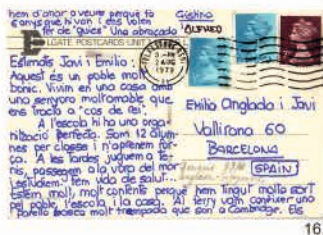 hem d'anar a veure perquè fa
anys que hi van i ens volen
fer de "guies" Una abraçada
Cristina
ALFRED
LGATE POSTCARDS UNIT
Estimats Javi i Emilio:
Aquest és un poble molt
bonic. Vivim en una casa amb
una senyora molt amable que
ens tracta a "cos de rei".
A l'escola hi ha una orga-
nització perfecta. Som 12 alum-
nes per classe i n'aprenem for-
ça. A les tardes juguem a Te-
nis, passegem a la vora del mar
i estudiem. Tem vida de salut...
Estem molt, molt contents perquè hem tingut molta sort
pel poble, l'escola i la casa. Al ferry vam conèixer una
parella basca molt trempada que són a Cambridge. Els
3-PM
2 AUG
1979
Emilio Anglada i Javi
Vallirana 60
BARCELONA
(SPAIN)
16